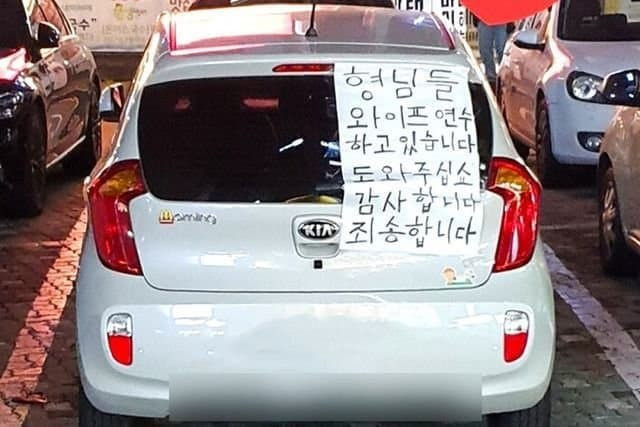 형님들
와이프 연수
하고 있습니다
도와주십쇼
감사합니다
죄송합니다
KIA